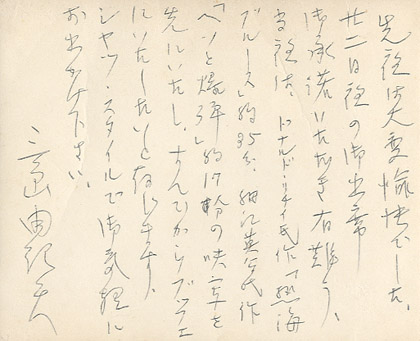 先程は大変愉快でした。
廿二日夜の御出席
御承諾いただき有難う。
当夜は、ドナルド・リチイ氏作「熱海
ブルース」約35分、細江英公氏作
「へそと原爆」約17分の映写を
先にいたし、すんでからブツフエ
にいたしたいと存じます。
シヤツ・スタイルで御気軽に
お出かけ下さい。
三島由紀夫